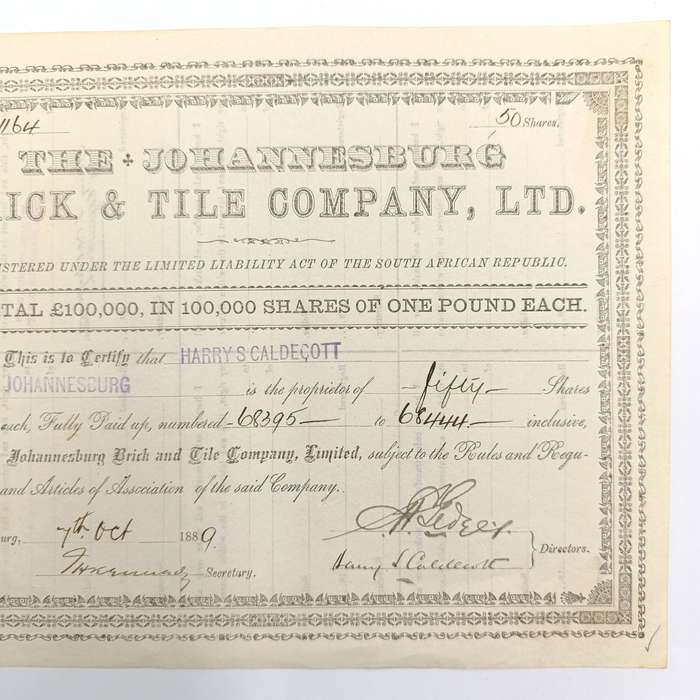 1164 50 Shares.
THE JOHANNESBURG
RICK & TILE COMPANY, LTD.
ISTERED UNDER THE LIMITED LIABILITY ACT OF THE SOUTH AFRICAN REPUBLIC.
TAL £100,000, IN 100,000 SHARES OF ONE POUND EACH.
This is to Certify that HARRY S CALDECOTT
JOHANNESBURG is the proprietor of fifty Shares
each, Fully Paid up, numbered 68395 to 68444 inclusive,
Johannesburg Brick and Tile Company, Limited, subject to the Rules and Regu-
and Articles of Association of the said Company.
burg, 7th Oct 1889.
Harry S Caldecott Directors.
Secretary.